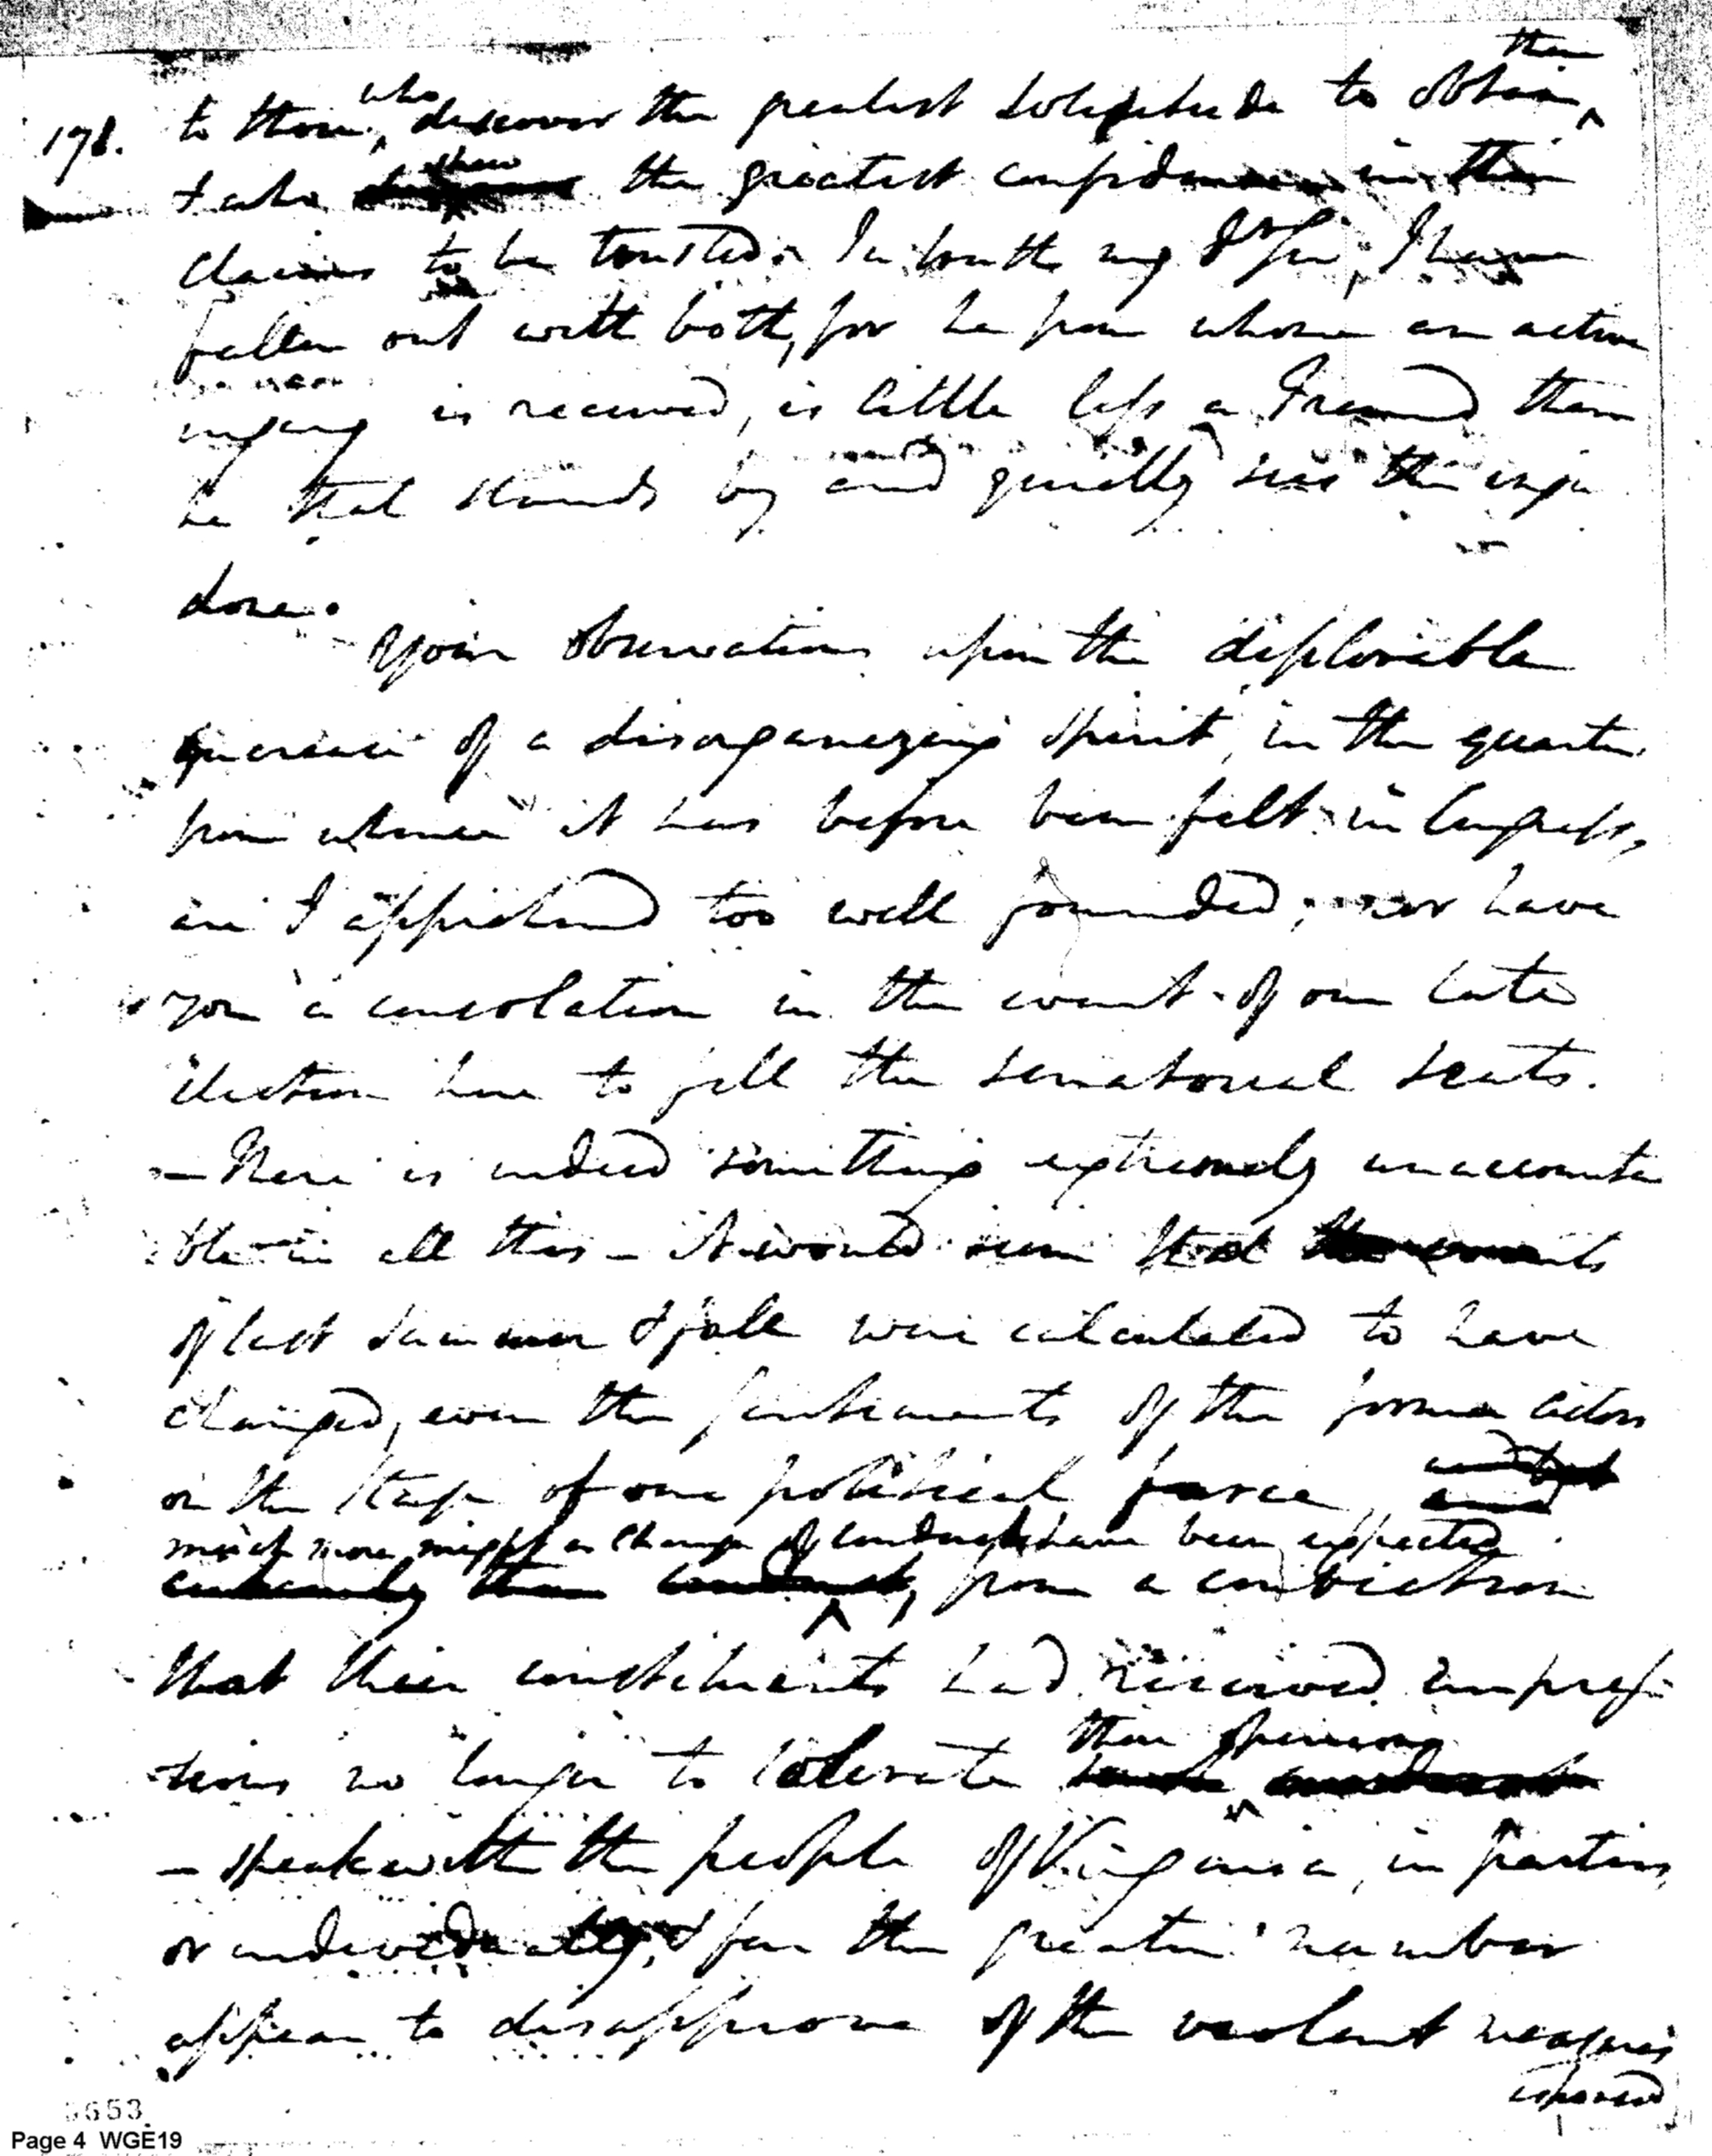 them
178. to those, who discover the greatest solicitude to obtain
& who shew the greatest confidence in their
claims to be trusted. In truth my Dr Sir, I have
fallen out with both, for he from whom an active
injury is received, is little less a Friend than
he that stands by and quietly sees the inju
done.
Your observations upon the deplorable
increase of a disorganizing spirit, in the quarter
from whence it has before been felt in Congress,
are I apprehend too well founded; nor have
you a consolation in the event of our late
election here to fill the senatorial seats.
– There is indeed something extremely unaccounta
ble in all this – it would seem that the events
of last summer & fall were calculated to have
changed, even the sentiments of the former actors
on the stage of our political farce,
much more might a change of conduct have been expected
certainly their conduct, from a conviction
that their constituents had received impres
sions no longer to tolerate
their opinions
– speak with the people of Virginia, in parties,
or individually, & far the greater number
appear to disapprove of the violent measures
espoused
3653
Page 4 WGE19